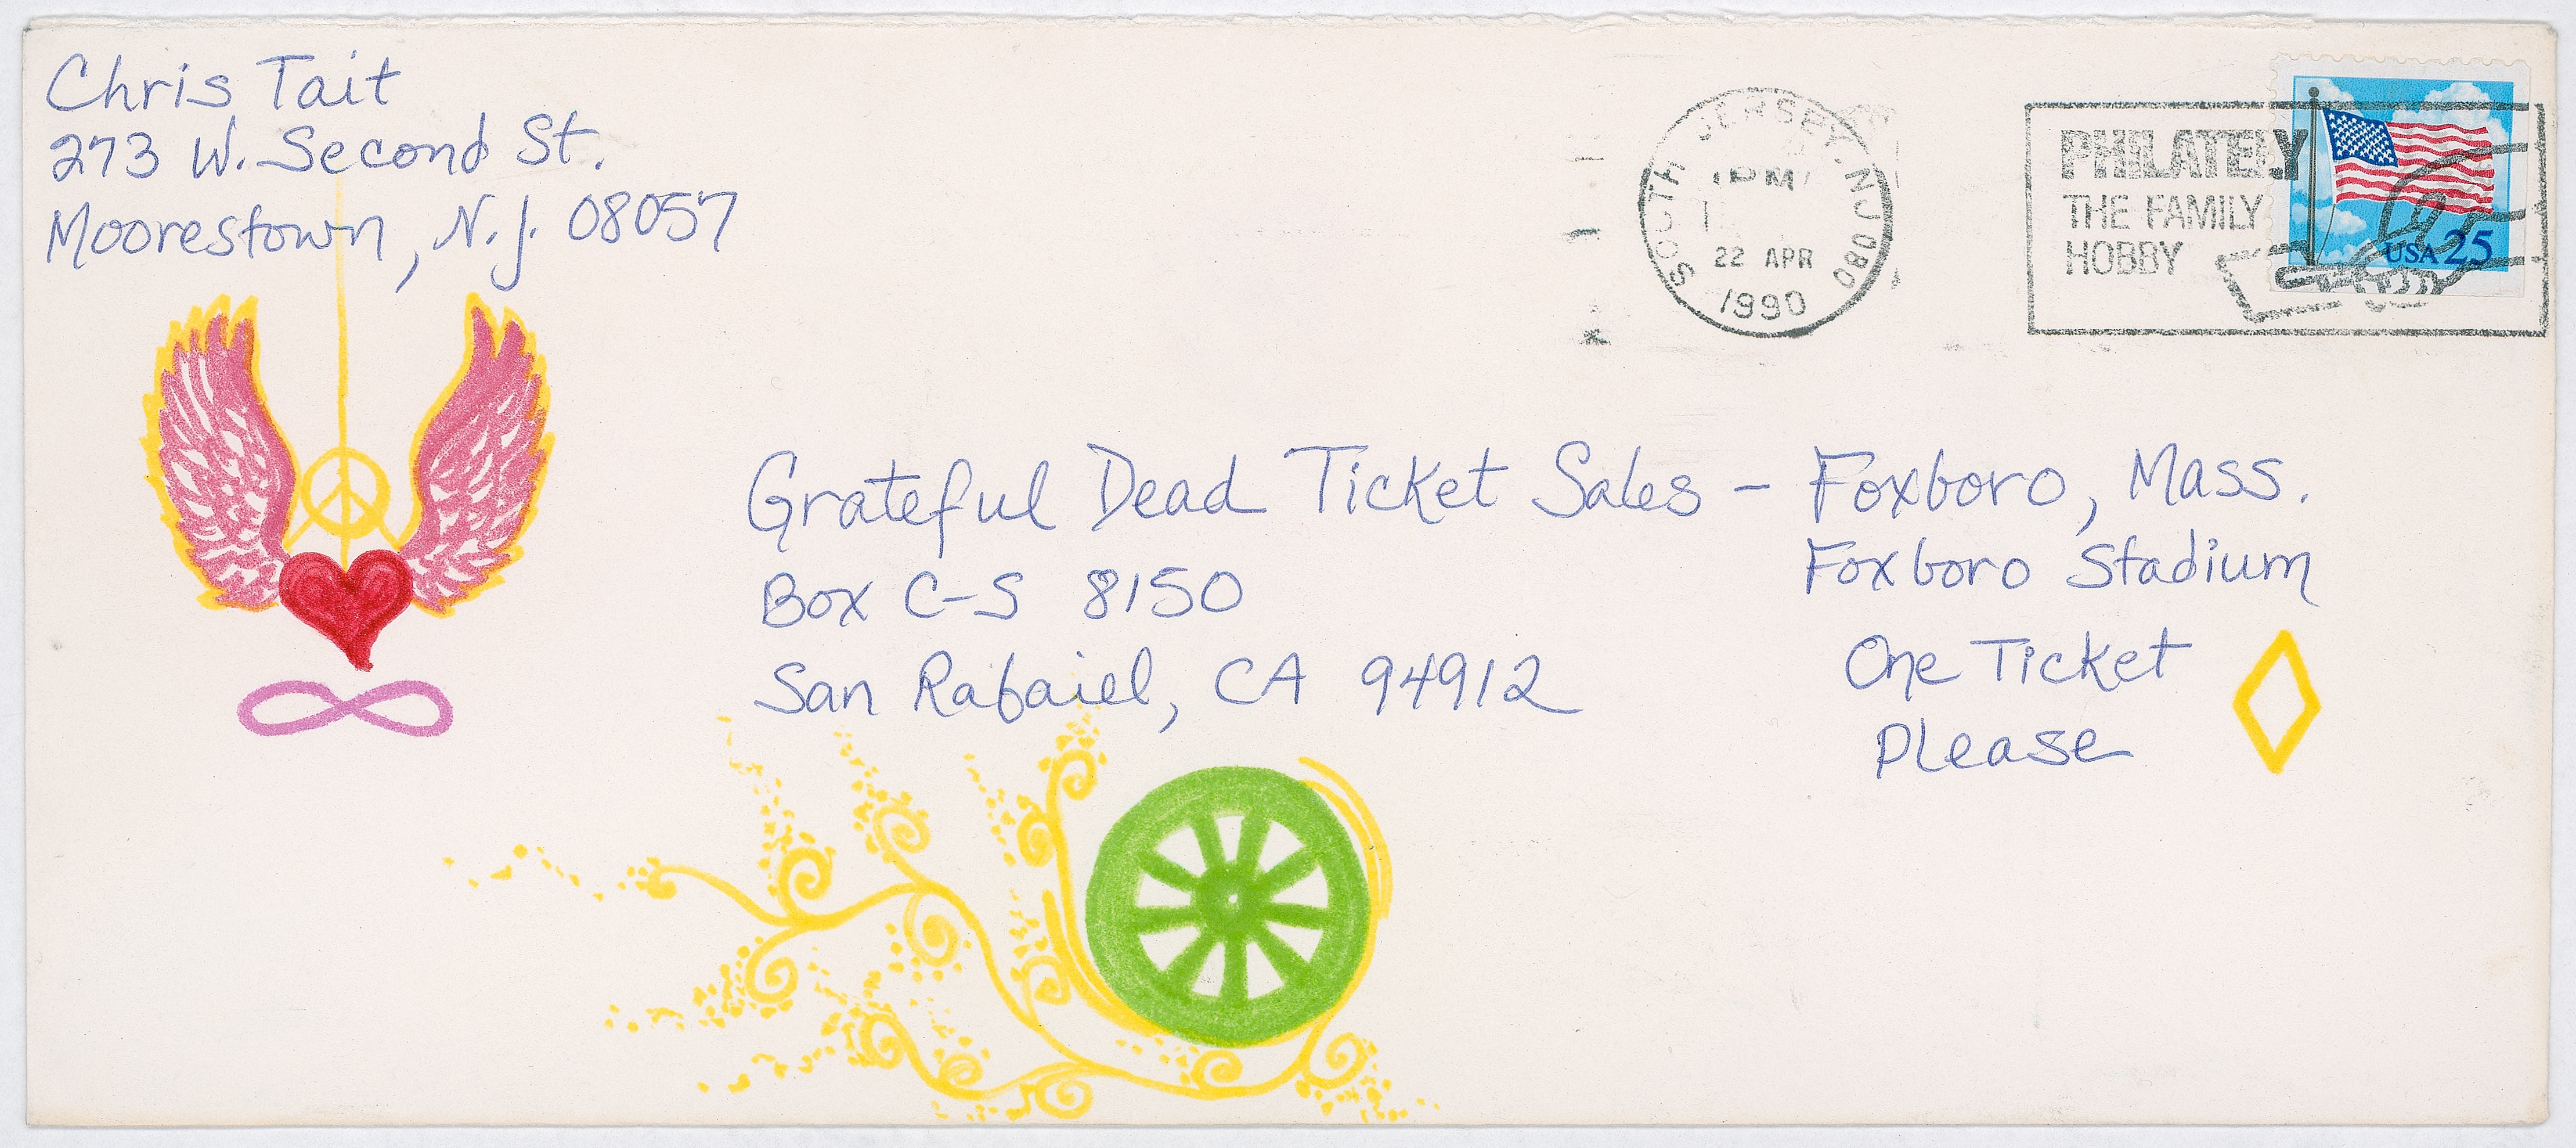 Chris Tait
273 W. Second St.
Moorestown, N.J. 08057
SOUTH JERSEY, NJ 080
PM
22 APR
1990
PHILATELY
THE FAMILY
HOBBY
USA 25
Grateful Dead Ticket Sales - Foxboro, Mass.
Foxboro Stadium
Box C-S 8150
San Rafaiel, CA 94912
One Ticket
Please